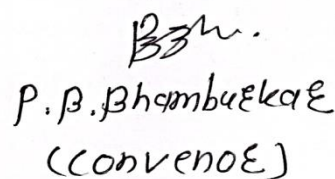 P. B. Bhamburkar
(Convenor)